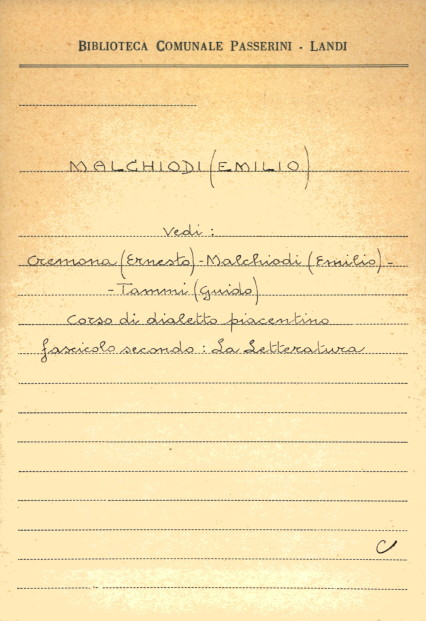 BIBLIOTECA COMUNALE PASSERINI - LANDI
MALCHIODI (EMILIO)
Vedi :
Cremona (Ernesto) - Malchiodi (Emilio) -
- Tammi (Guido)
Corso di dialetto piacentino
fascicolo secondo : La Letteratura
C